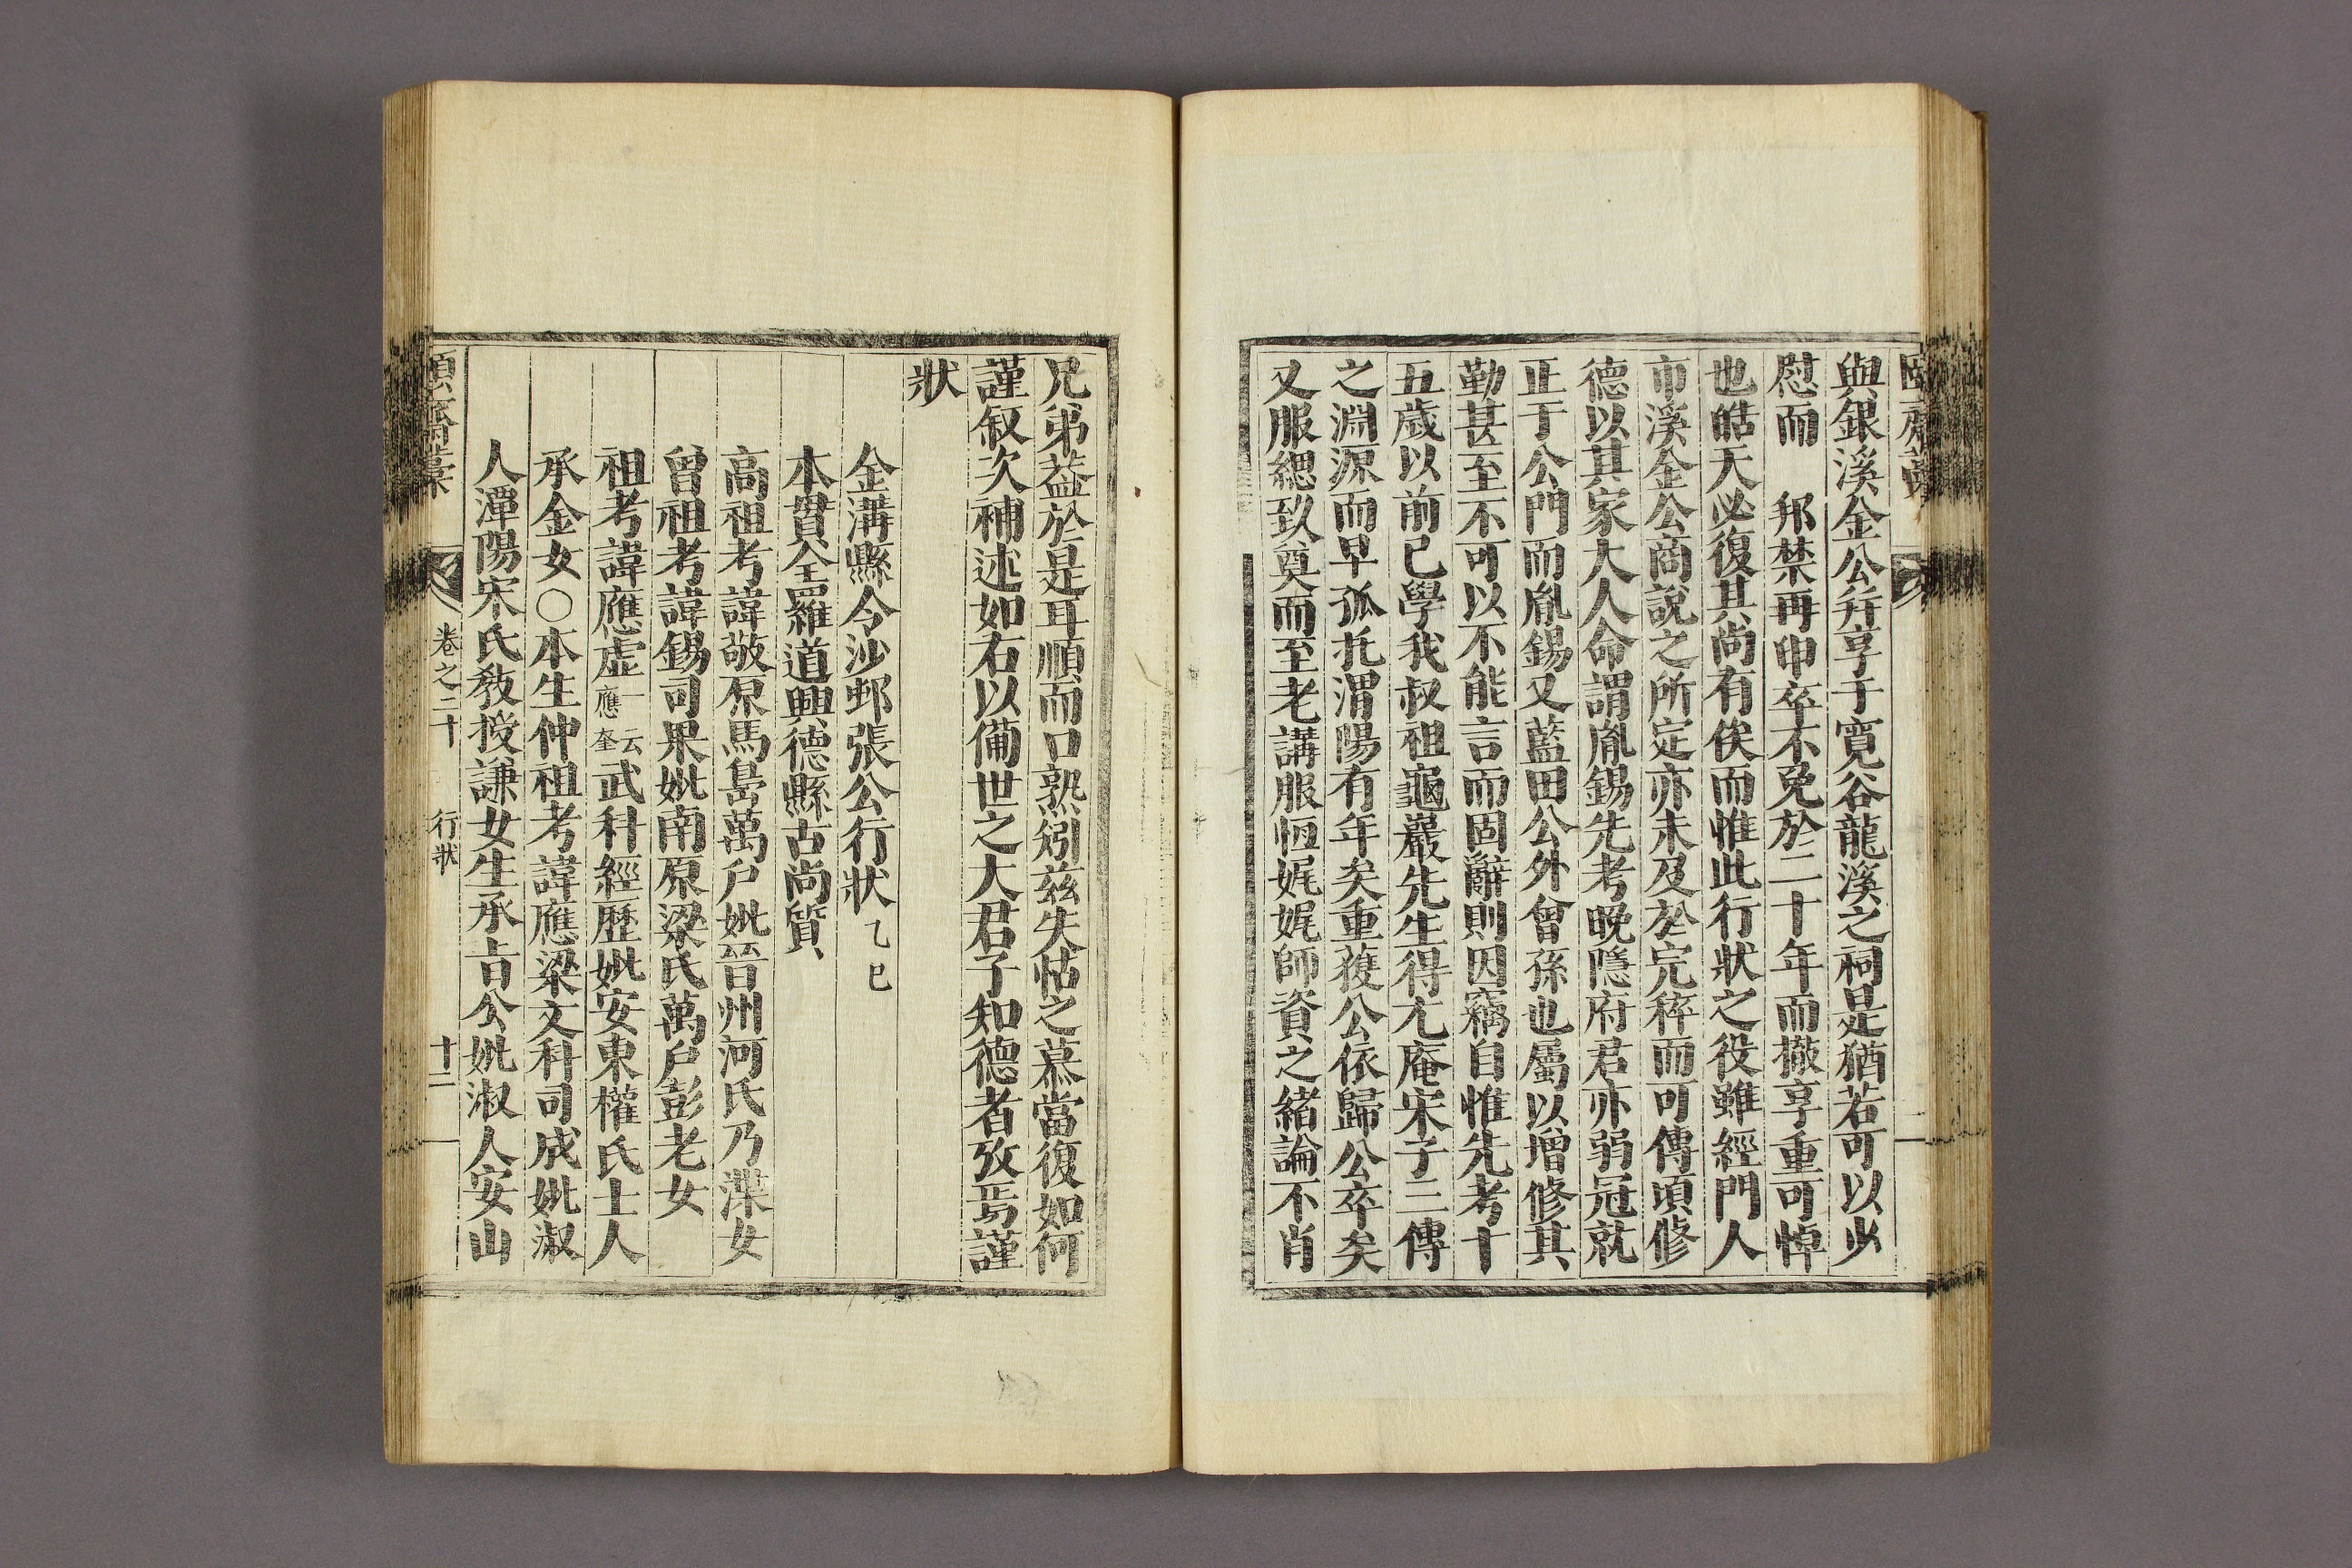 與銀溪金公幷享于寬谷龍溪之祠是猶若可以少
慰而 邦禁再申卒不免於二十年而撤享重可悼
也皓天必復其尙有俟而惟此行狀之役雖經門人
市溪金公商說之所定亦未及於完稡而可傳頃修
德以其家大人命謂胤錫先考晩隱府君亦弱冠就
正于公門而胤錫又藍田公外曾孫也屬以增修其
勤甚至不可以不能言而固辭則因竊自惟先考十
五歲以前已學我叔祖龜巖先生得尤庵宋子三傳
之淵源而早孤托渭陽有年矣重獲公依歸公卒矣
又服緦致奠而至老講服恒娓娓師資之緖論不肖
兄弟益於是耳順而口熟矧玆失怙之慕當復如何
謹叙次補述如右以備世之大君子知德者攷焉謹
狀
金溝縣令沙邨張公行狀 乙巳
本貫全羅道興德縣古尙質
高祖考諱敬原馬島萬戶妣晉州河氏乃渫女
曾祖考諱錫司果妣南原梁氏萬戶彭老女
祖考諱應虛一云應奎武科經歷妣安東權氏士人
承金女〇本生仲祖考諱應梁文科司成妣淑
人潭陽宋氏敎授謙女生承旨公妣淑人安山
頤齋藁 卷之二十 行狀 十二